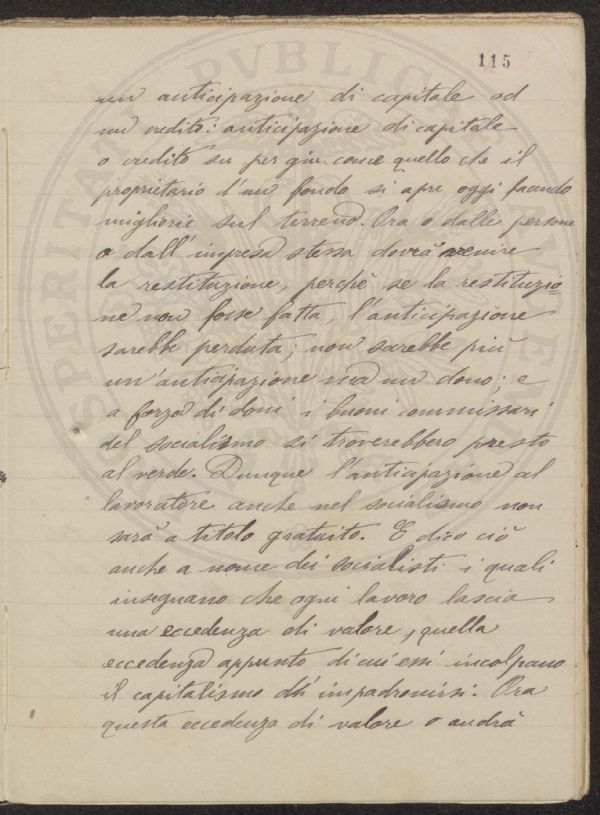 115
un anticipazione di capitale od
un credito: anticipazione di capitale
o credito su per giu come quello che il
proprietario d'un fondo si apre oggi facendo
migliorie sul terreno. Ora o dalle persone
o dall'impresa stessa dovrà venire
la restituzione, perchè se la restituzio=
ne non fosse fatta, l'anticipazione
sarebbe perduta; non sarebbe più
un'anticipazione ma un dono; e
a forza di doni i buoni commissari
del socialismo si troverebbero presto
al verde. Dunque l'anticipazione al
lavoratore anche nel socialismo non
sarà a titolo gratuito. E dico ciò
anche a nome dei socialisti i quali
insegnano che ogni lavoro lascia
una eccedenza di valore, quella
eccedenza appunto di cui essi incolpano
il capitalismo di impadronirsi. Ora
questa eccedenza di valore o andrà